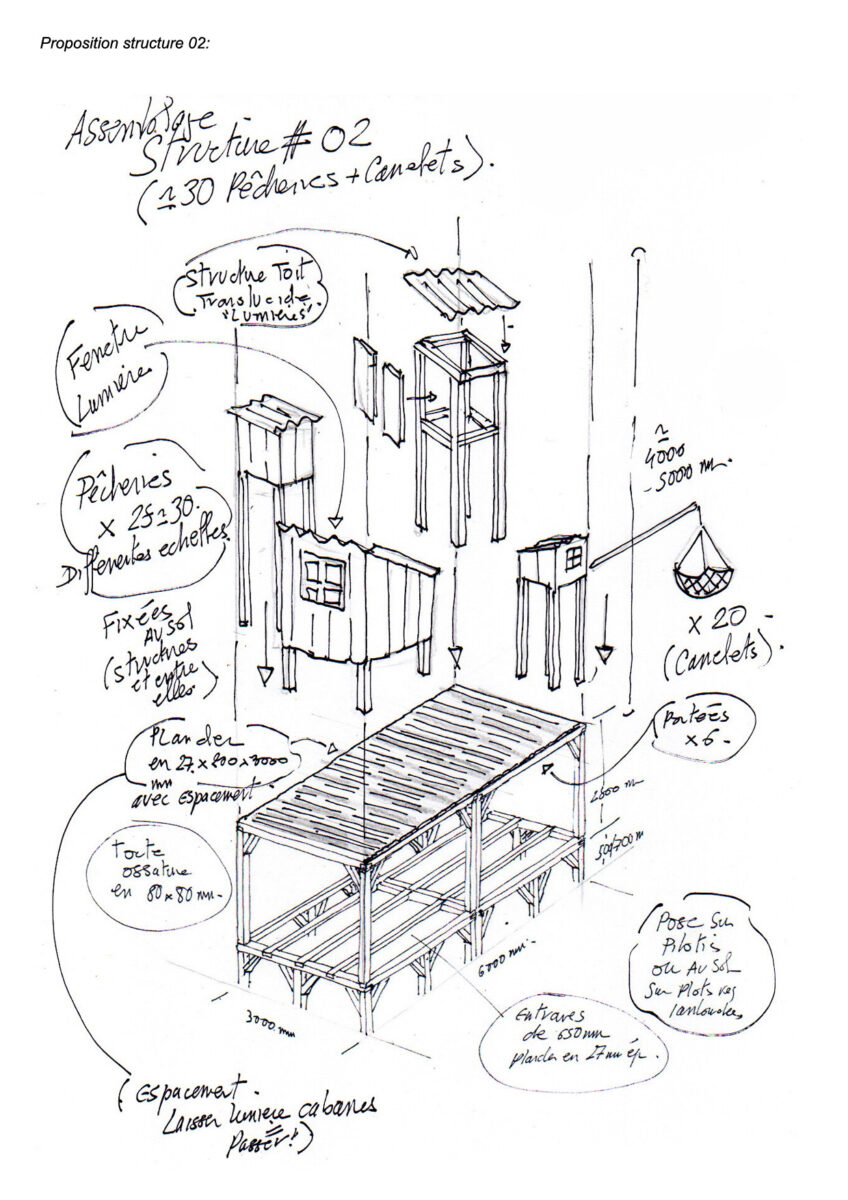 Proposition structure 02:
Assemblage
Structure # 02
(± 30 Pêcheries + Carrelets).
Structure Toit
Translucide
"Lumières".
Fenetre
Lumière
Pêcheries
x 25 à 30.
Differentes echelles.
Fixées
Au sol
(Structures
et entre
elles.)
~
4000
- 5000 m.
x 20 -
(Carrelets).
Portées
x 6 -
Plancher
en 27 x 200 x 3000
mm
avec espacement.
Toute
ossature
en 80 x 80 mm.
6000 mm.
3000 mm
Pose sur
Pilotis
ou Au sol
sur Plots
Entraxes
de 650 mm
plancher en 27 mm ép.
(Espacement.
Laisser lumière cabanes
Passer!)